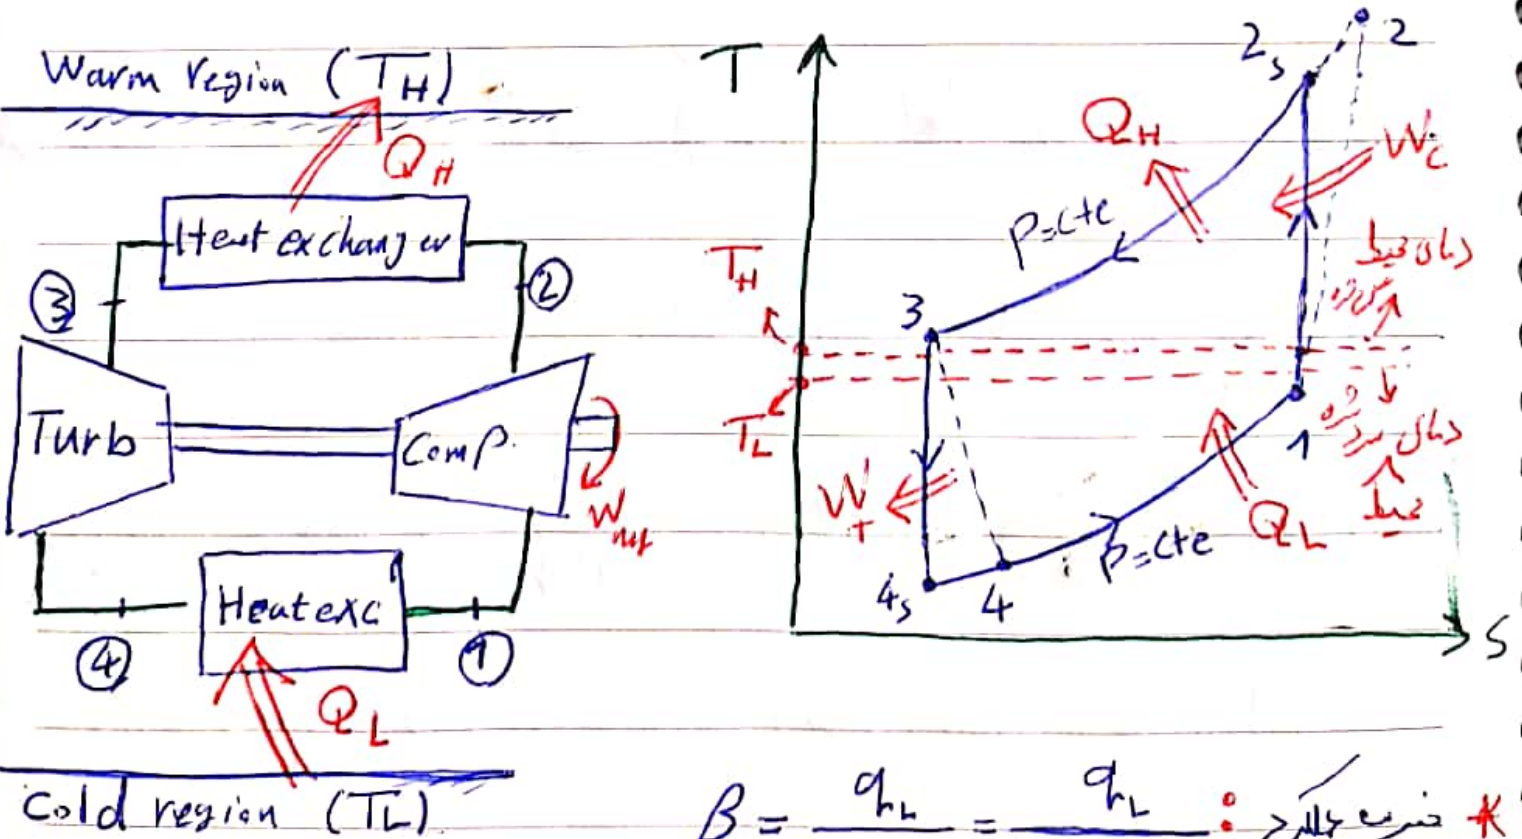 Warm region (TH)
QH
Heat exchanger
3
2
Turb
Comp.
Wnet
Heat exc
4
1
QL
Cold region (TL)
T
2s
2
QH
Wc
P=cte
دمای محیط
گرم شده
TH
3
TL
سرد شده
دمای
محیط
1
WT
QL
P=cte
4s
4
S
* ضریب عملکرد : β = qL = qL